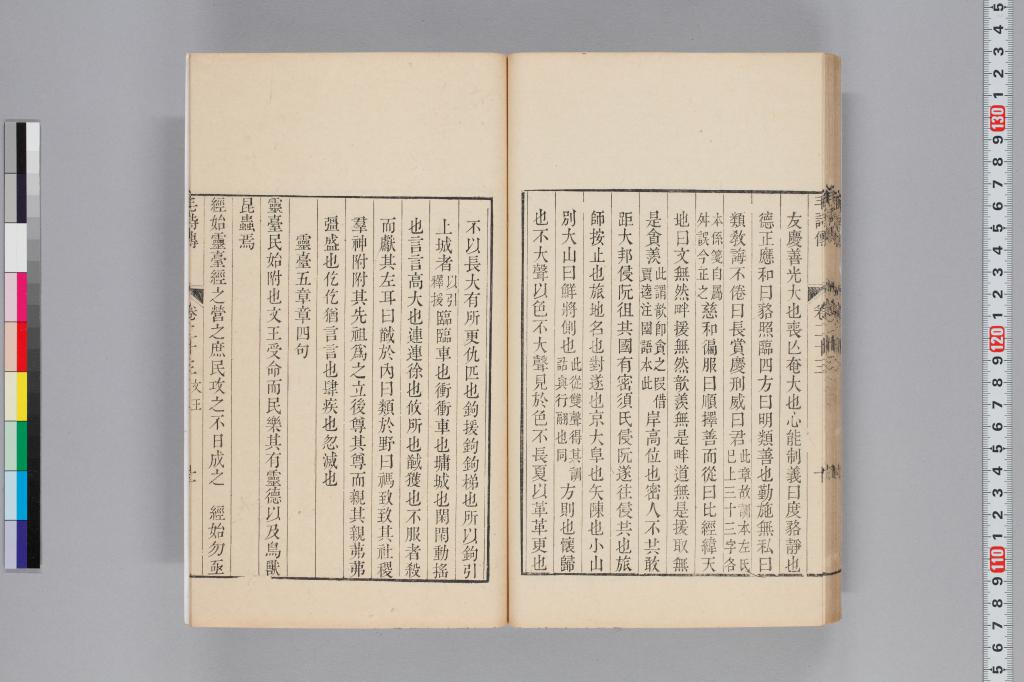 友慶善光大也喪亾奄大也心能制義曰度貉靜也
德正應和曰貉照臨四方曰明類善也勤施無私曰
類教誨不倦曰長賞慶刑威曰君此章故訓本左氏已上三十三字各
本係箋自爲舛誤今正之慈和徧服曰順擇善而從曰比經緯天
地曰文無然畔援無然歆羨無是畔道無是援取無
是貪羨此謂歆卽貪之叚借賈逵注國語本此岸高位也密人不共敢
距大邦侵阮徂共國有密須氏侵阮遂往侵共也旅
師按止也旅地名也對遂也京大阜也矢陳也小山
別大山曰鮮將側也此從雙聲得其訓詁與行翮也同方則也懷歸
也不大聲以色不大聲見於色不長夏以革革更也
不以長大有所更仇匹也鉤援鉤鉤梯也所以鉤引
上城者以引釋援臨臨車也衝衝車也墉城也閑閑動搖
也言言高大也連連徐也攸所也馘獲也不服者殺
而獻其左耳曰馘於內曰類於野曰禡致致其社稷
羣神附附其先祖爲之立後尊其尊而親其親茀茀
彊盛也仡仡猶言言也肆疾也忽滅也
靈臺五章章四句
靈臺民始附也文王受命而民樂其有靈德以及鳥獸
昆蟲焉
經始靈臺經之營之庶民攻之不日成之 經始勿亟
毛詩傳 卷二十三 文王